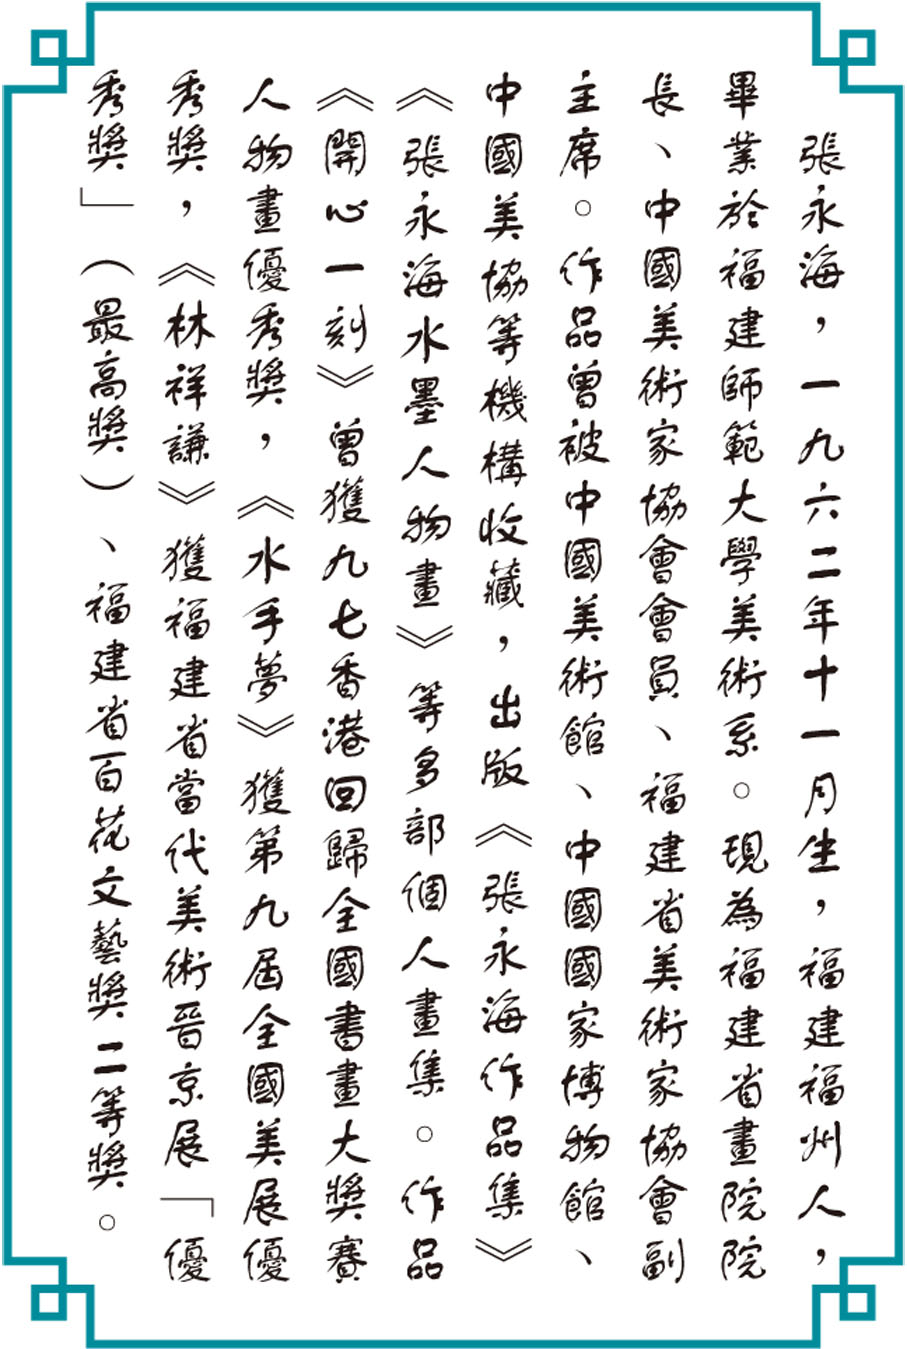 張永海，一九六二年十一月生，福建福州人，
畢業於福建師範大學美術系。現為福建省畫院院
長、中國美術家協會會員、福建省美術家協會副
主席。作品曾被中國美術館、中國國家博物館、
中國美協等機構收藏，出版《張永海作品集》
《張永海水墨人物畫》等多部個人畫集。作品
《開心一刻》曾獲九七香港回歸全國書畫大獎賽
人物畫優秀獎，《水手夢》獲第九屆全國美展優
秀獎，《林祥謙》獲福建省當代美術晉京展「優
秀獎」（最高獎）、福建省百花文藝獎二等獎。